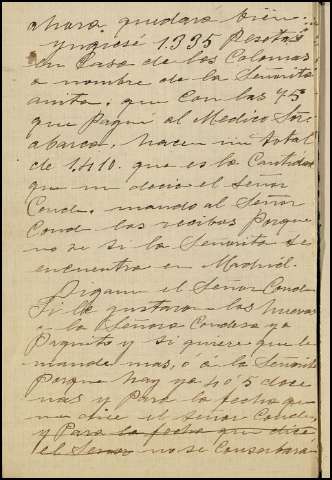 ahora quedara bien.
yngresé 1.335 Pesetas
en Casa de los Colomas
a nombre de la Señorita
anita. que con las 75
que Pagué al Medico Sor
abarca, hacen un total
de 1.410. que es la Cantidad
que m decia el Señor
Conde. mando al Señor
Cond los recibos Porque
no se si la Señorita se
encuentra en Madrid.
Digame el Señor Conde
Si le gustaron los huevos
a la Señora Condesa ya
Paquito y si quiere que le
mande mas, ó á la Señorita
Porque hay ya 4 ó 5 doce
nas y Para la fecha que
me dice el señor Conde,
y Para la fecha que dice
el Senor no se Conserbará